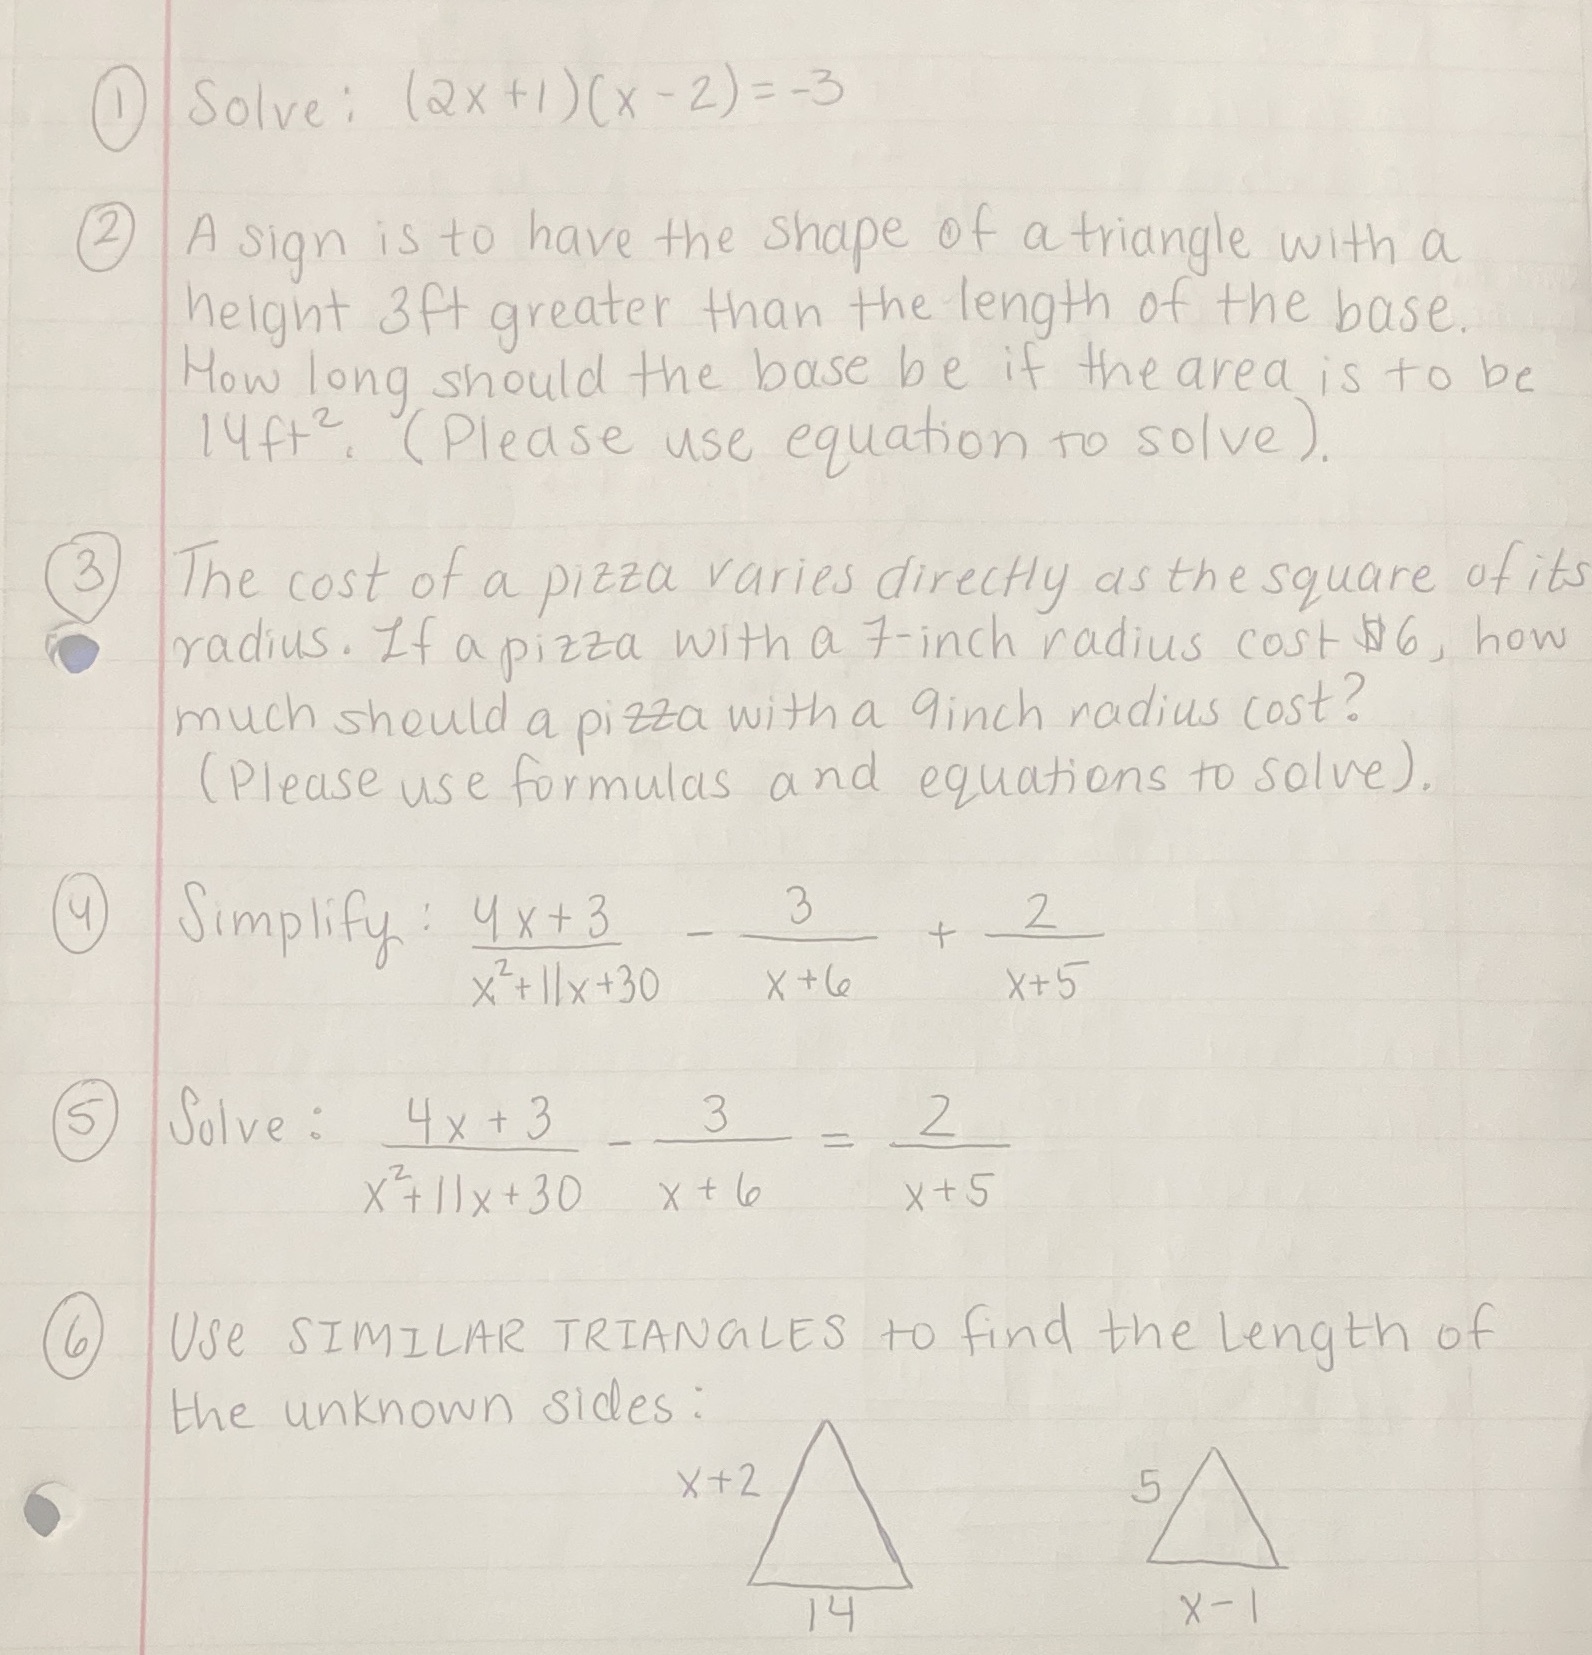 ① Solve: (2x+1)(x-2)=-3
② A sign is to have the shape of a triangle with a
height 3ft greater than the length of the base.
How long should the base be if the area is to be
14ft². (Please use equation to solve).
③ The cost of a pizza varies directly as the square of its
radius. If a pizza with a 7-inch radius cost $6, how
much should a pizza with a 9inch radius cost?
(Please use formulas and equations to solve).
④ Simplify: (4x+3)/(x²+11x+30) - 3/(x+6) + 2/(x+5)
⑤ Solve: (4x+3)/(x²+11x+30) - 3/(x+6) = 2/(x+5)
⑥ Use SIMILAR TRIANGLES to find the length of
the unknown sides:
x+2 5
14 x-1